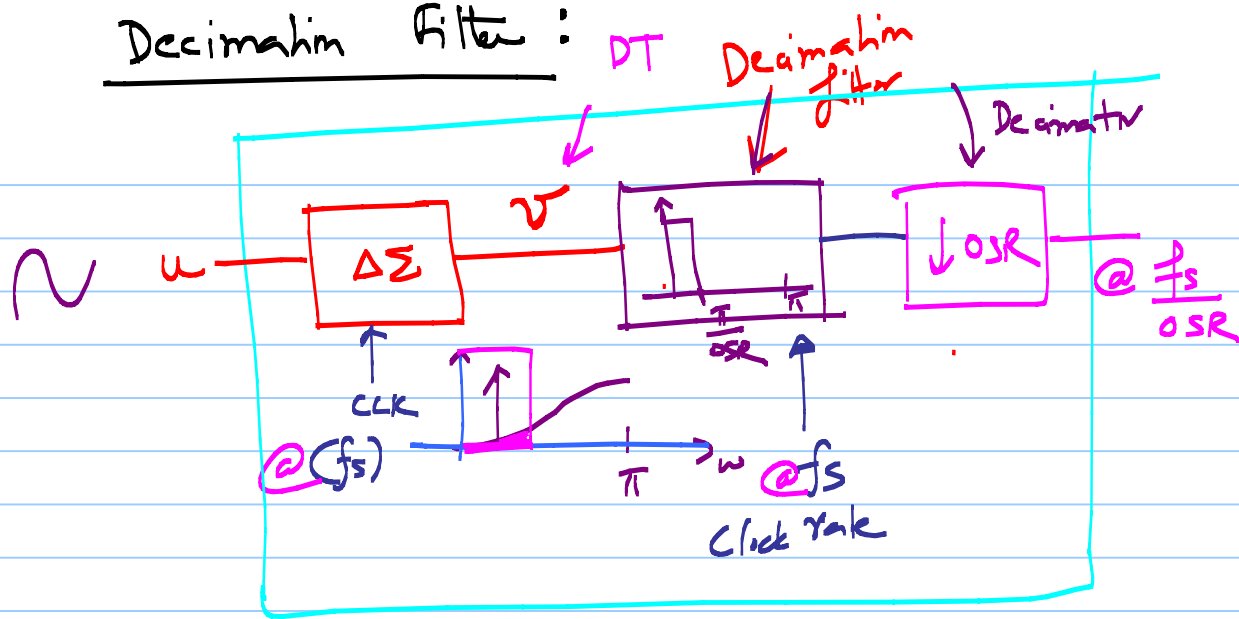 Decimation Filter :
DT
Decimation
filter
Decimator
u
ΔΣ
v
π
π/OSR
↓ OSR
@ fs/OSR
CLK
@ (fs)
π
ω
@ fs
Clock rate